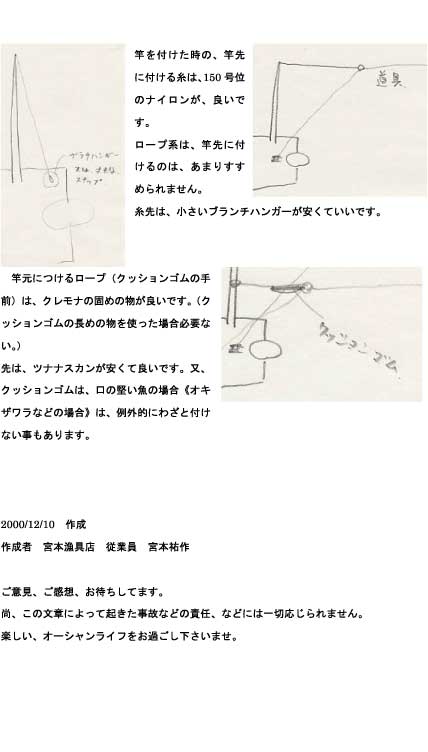 竿を付けた時の、竿先
に付ける糸は、150 号位
のナイロンが、良いで
す。
ロープ系は、竿先に付
けるのは、あまりすす
められません。
糸先は、小さいブランチハンガーが安くていいです。
ブランチハンガー
スナップ
道具
竿元につけるロープ（クッションゴムの手
前）は、クレモナの固めの物が良いです。（ク
ッションゴムの長めの物を使った場合必要な
い。）
先は、ツナナスカンが安くて良いです。又、
クッションゴムは、口の堅い魚の場合《オキ
ザワラなどの場合》は、例外的にわざと付け
ない事もあります。
クッションゴム
2000/12/10　作成
作成者　宮本漁具店　従業員　宮本祐作
ご意見、ご感想、お待ちしてます。
尚、この文章によって起きた事故などの責任、などには一切応じられません。
楽しい、オーシャンライフをお過ごし下さいませ。